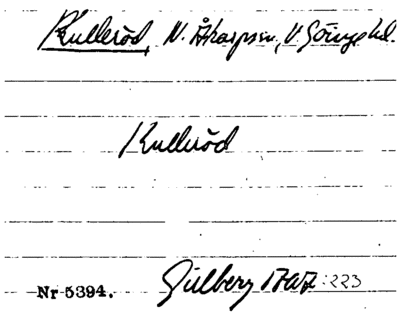 Kulleröd, N. Åkarpssn, V Göinge hd.
Kulleröd
Nr 5394. Gillberg 1767:223